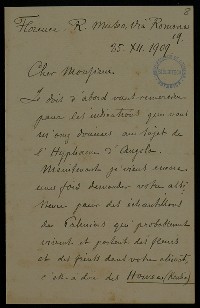 2
Florence R. Museo Via Romana
19.
25. XII. 1909
Cher Monsieur
Je dois d'abord vous remercier
pour les indications que vous
m'avez données au sujet de
l'Hyphaene d'Angola.
Maintenant je viens encore
une fois demander votre
pour des échantillons
des Palmiers que probablement
vivent et portent des fleurs
et des fruits dans votre
c'est-a-dire des Howea (Kentia)